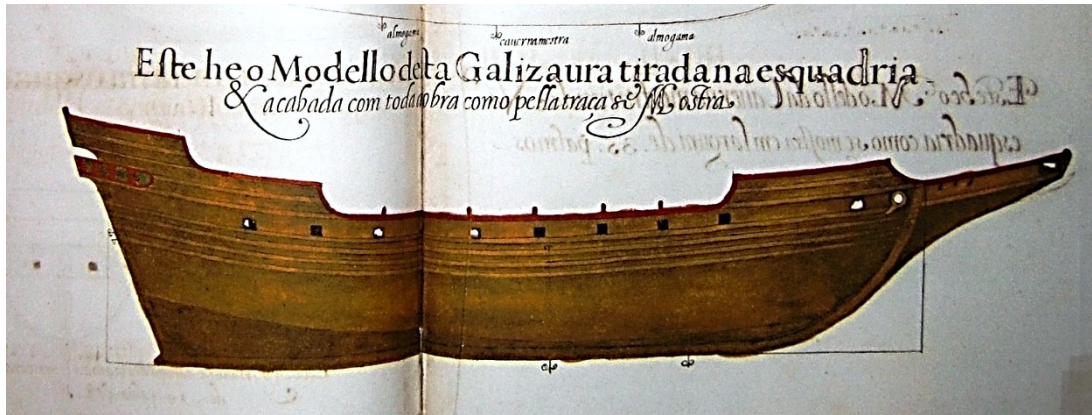 almogama cauernamestra almogama
Este he o Modello desta Galizaura tirada na esquadria
& acabada com toda obra como pella traça se Mostra.